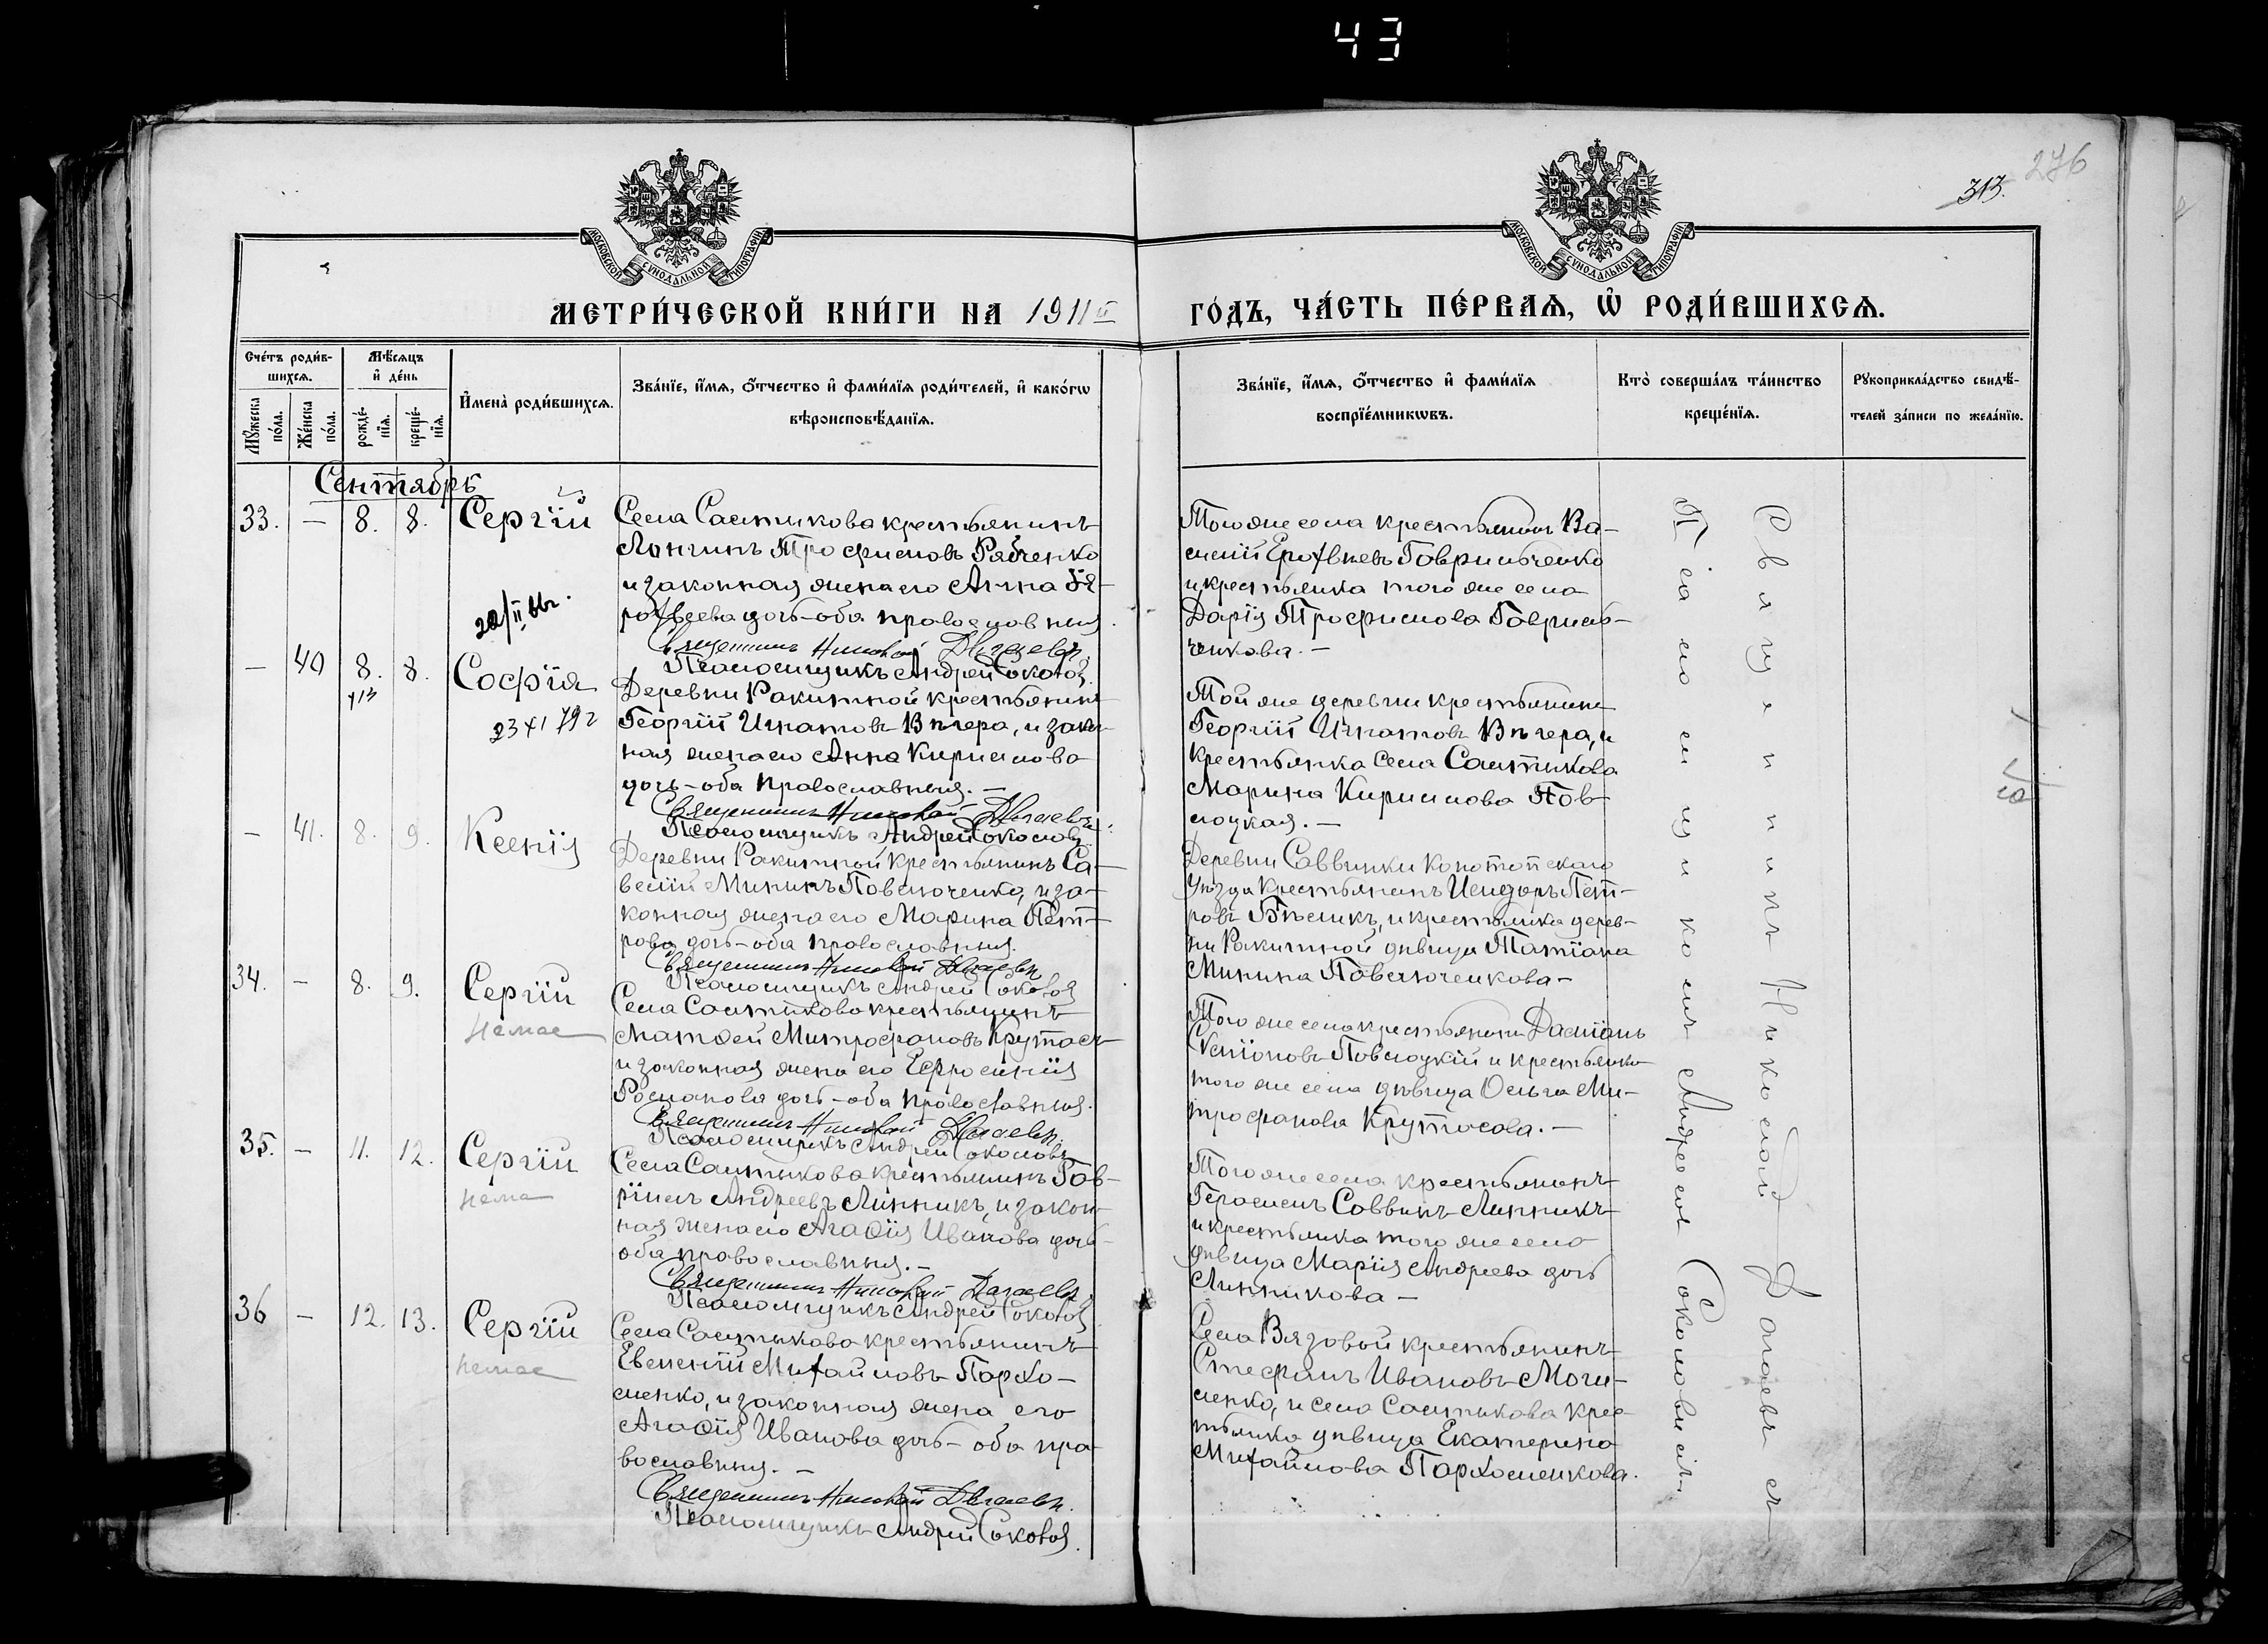 43
276
313.
МОСКОВСКОЙ СѴНОДАЛЬНОЙ ТИПОГРАФІИ
МОСКОВСКОЙ СѴНОДАЛЬНОЙ ТИПОГРАФІИ
МЕТРИ́ЧЕСКОЙ КНИ́ГИ НА 1911й
ГО́ДЪ, ЧА́СТЬ ПЕ́РВАѦ, Ѡ҆ РОДИ́ВШИХСѦ.
Сче́тъ роди́в-
шихсѧ.
Мꙋ́жеска по́ла.
Же́нска по́ла.
Мѣ́сѧцъ
и҆ де́нь
рожде́-
нїѧ.
креще́-
нїѧ.
И҆мена̀ роди́вшихсѧ.
Зва́нїе, и҆́мѧ, ѻ҆́тчество и҆ фами́лїѧ роди́телей, и҆ како́гѡ
вѣроисповѣ́данїѧ.
Зва́нїе, и҆́мѧ, ѻ҆́тчество и҆ фами́лїѧ
воспрїе́мникѡвъ.
Кто̀ соверша́лъ та́инство
креще́нїѧ.
Рꙋкоприкла́дство свидѣ́-
телей за́писи по жела́нїю.
Сентябрь
33. — 8. 8. Сергій
Села Салтыкова крестьянинъ
Лонгинъ Трофимовъ Рябченко
и законная жена его Анна Је-
рофѣева дочь - оба православныя.
Священникъ Николай Догаевъ.
Псаломщикъ Андрей Соколов
Того же села крестьянинъ Ва-
силій Ерофѣевъ Говрильченко
и крестьянка того же села
Дарія Трофимова Гаврил-
ченкова. —
— 40 8. 8. Софія
23 XI 79 г
Деревни Ракитной крестьянинъ
Георгій Игнатовъ Вечера, и закон-
ная жена его Анна Кирилова
дочь - оба православныя. —
Священникъ Николай Догаевъ.
Псаломщикъ Андрей Соколовъ
Той же деревни крестьянинъ
Георгій Игнатовъ Вечера, и
крестьянка села Салтыкова
Марина Кирилова Пов-
лоцкая. —
— 41. 8. 9. Ксенія
Деревни Ракитной крестьянинъ Са-
велій Мининъ Повелюченко, и за-
конная жена его Марина Пет-
рова дочь - оба православныя.
Священникъ Николай Догаевъ
Псаломщикъ Андрей Соколов
Деревни Саввинки Конотопскаго
уѣзда крестьянинъ Исидоръ Пет-
ровъ Бѣликъ, и крестьянка дерев-
ни Ракитной дѣвица Татіана
Минина Повелюченкова —
34. — 8. 9. Сергій
немае
Села Салтыкова крестьянинъ
Матѳей Митрофановъ Крутась
и законная жена его Евфросинія
Романова дочь - оба православныя.
Священникъ Николай Догаевъ.
Псаломщикъ Андрей Соколовъ
Того же села крестьянинъ Даміанъ
Ксенофонтовъ Повлоцкій и крестьянка
того же села дѣвица Ольга Ми-
трофанова Крутасова. —
35. — 11. 12. Сергій
нема
Села Салтыкова крестьянинъ Гав-
ріилъ Андреевъ Линникъ, и закон-
ная жена его Агаѳія Иванова дочь
оба православныя. —
Священникъ Николай Догаевъ.
Псаломщикъ Андрей Соколов
Того же села крестьянинъ
Герасимъ Саввинъ Линникъ
и крестьянка того же села
дѣвица Марія Андреева дочь
Линникова —
36 — 12. 13. Сергій
немае
Села Салтыкова крестьянинъ
Евгеній Михайловъ Пархо-
менко, и законная жена его
Агаѳія Иванова дочь - оба пра-
вославныя. —
Священникъ Николай Догаевъ.
Псаломщикъ Андрей Соколов.
Села Вязовой крестьянинъ
Стефанъ Ивановъ Моги-
ленко, и села Салтыкова крес-
тьянка дѣвица Екатерина
Михайлова Пархоменкова.
Священникъ Николай Догаевъ съ
Псаломщикомъ Андреемъ Соколовымъ.